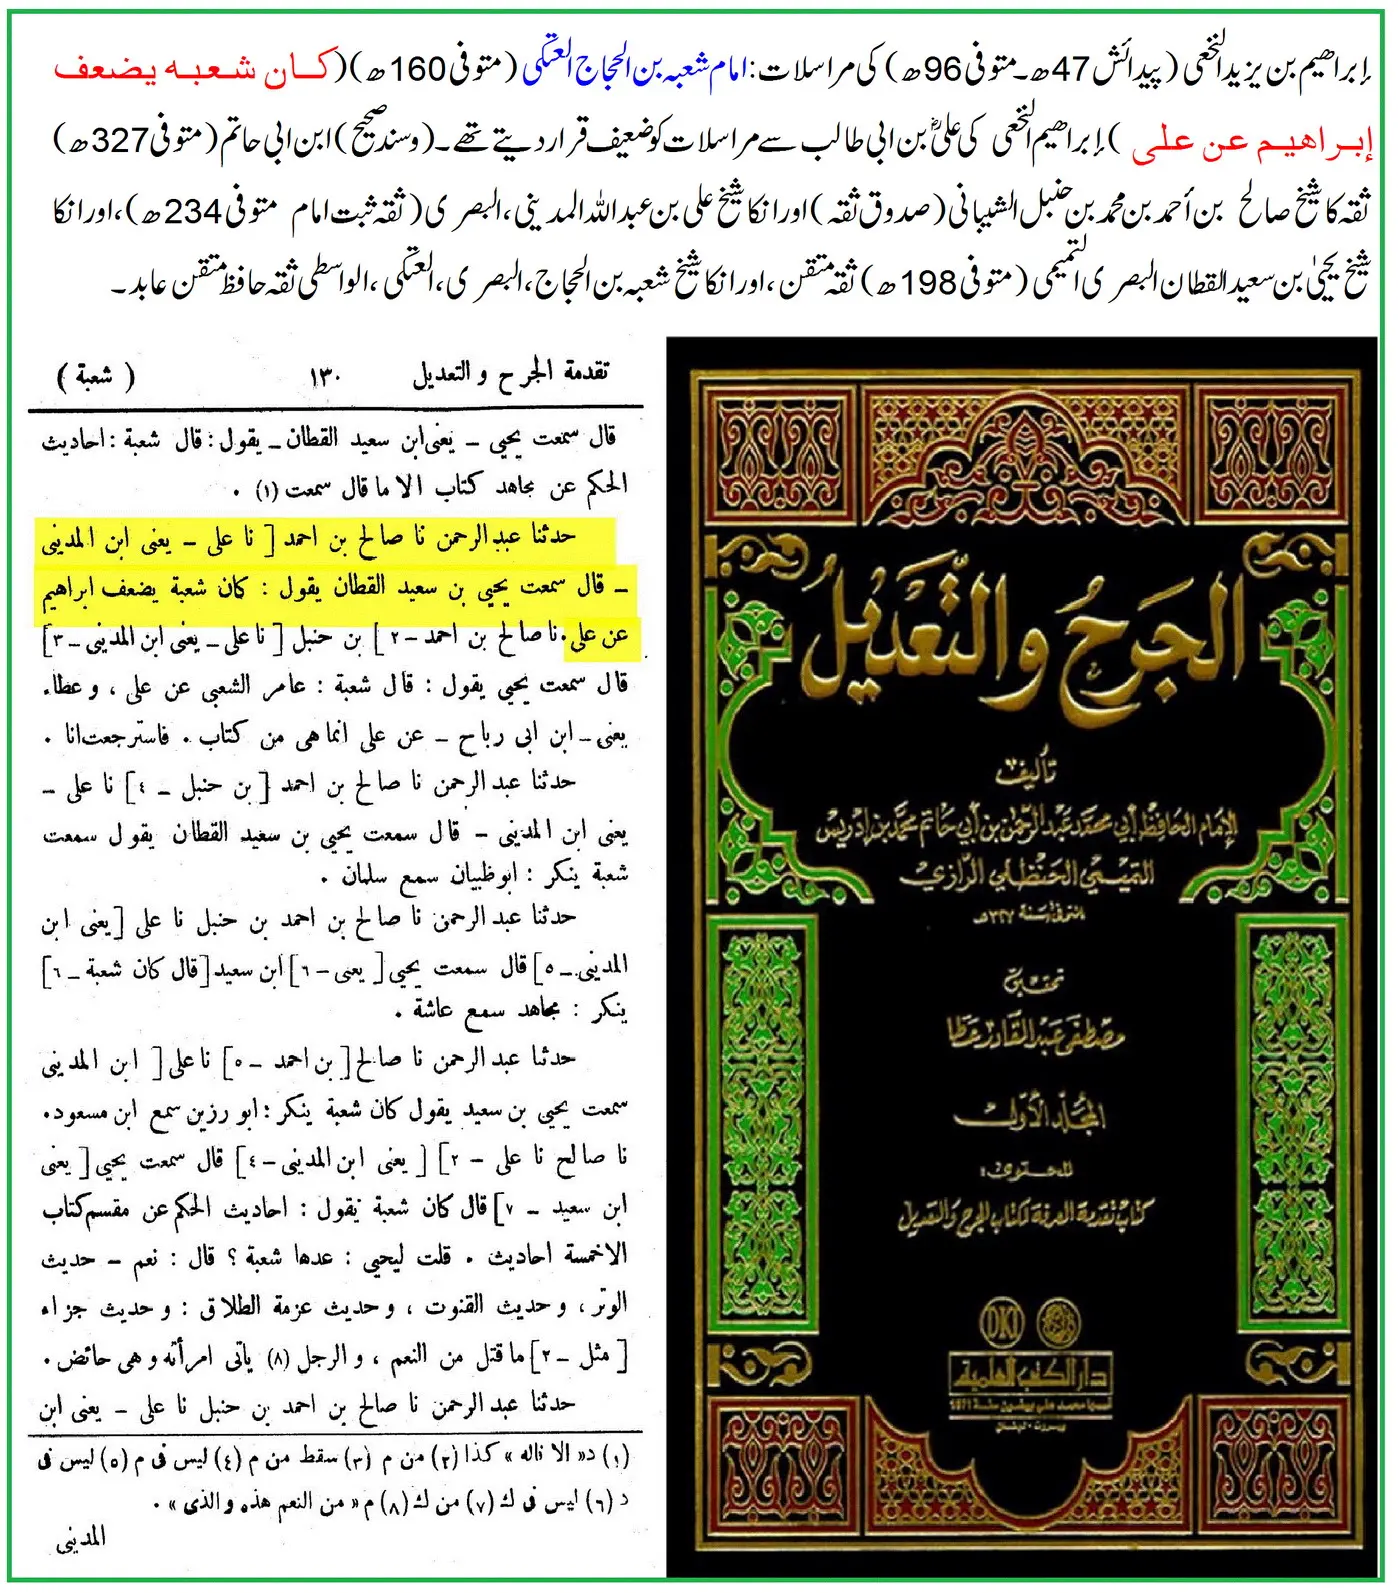 إبراھیم بن یزید النخعی (پیدائش 47ھ۔متوفی 96ھ) کی مراسلات: امام شعبہ بن الحجاج العتکی (متوفی 160ھ) (کان شعبہ یضعف
إبراھیم عن علی) إبراھیم النخعی کی علیؓ بن ابی طالب سے مراسلات کو ضعیف قرار دیتے تھے۔ (وسندہ صحیح) ابن ابی حاتم (متوفی 327ھ)
ثقہ کا شیخ صالح بن أحمد بن محمد بن حنبل الشیبانی (صدوق ثقہ) اور انکا شیخ علی بن عبداللہ المدینی، البصری (ثقہ ثبت امام متوفی 234ھ)، اور انکا
شیخ یحییٰ بن سعید القطان البصری التمیمی (متوفی 198ھ) ثقہ متقن، اور انکا شیخ شعبہ بن الحجاج، البصری، العتکی، الواسطی ثقہ حافظ متقن عابد۔
تقدمة الجرح والتعديل ١٣٠ (شعبة)
قال سمعت يحيى ـ يعنى ابن سعيد القطان ـ يقول: قال شعبة: احاديث
الحكم عن مجاهد كتاب الا ما قال سمعت (١) .
حدثنا عبد الرحمن نا صالح بن احمد [ نا على ـ يعنى ابن المدينى
ـ قال سمعت يحيى بن سعيد القطان يقول: كان شعبة يضعف ابراهيم
عن على. نا صالح بن احمد ـ ٢ ] بن حنبل [ نا على ـ يعنى ابن المدينى ـ ٣]
قال سمعت يحيى يقول: قال شعبة: عامر الشعبى عن على ، و عطاء
يعنى ـ ابن ابى رباح ـ عن على انما هى من كتاب . فاسترجعت انا .
حدثنا عبد الرحمن نا صالح بن احمد [ بن حنبل ـ ٤ ] نا على ـ
يعنى ابن المدينى ـ قال سمعت يحيى بن سعيد القطان يقول سمعت
شعبة ينكر: ابو ظبيان سمع سلمان .
حدثنا عبد الرحمن نا صالح بن احمد بن حنبل نا على [ يعنى ابن
المدينى ـ ٥] قال سمعت يحيى [ يعنى ـ ٦] ابن سعيد [قال كان شعبة ـ ٦]
ينكر: مجاهد سمع عائشة .
حدثنا عبد الرحمن نا صالح [ بن احمد ـ ٥] نا على [ ابن المدينى
سمعت يحيى بن سعيد يقول كان شعبة ينكر: ابو رزين سمع ابن مسعود.
نا صالح نا على ـ ٢] [ يعنى ابن المدينى ـ ٤] قال سمعت يحيى [ يعنى
ابن سعيد ـ ٧] قال كان شعبة يقول: احاديث الحكم عن مقسم كتاب
الا خمسة احاديث . قلت ليحيى: عدها شعبة ؟ قال: نعم ـ حديث
الوتر، و حديث القنوت ، و حديث عزمة الطلاق: و حديث جزاء
[ مثل ـ ٢] ما قتل من النعم ، و الرجل (٨) يأتى امرأته و هى حائض.
حدثنا عبد الرحمن نا صالح بن احمد بن حنبل نا على ـ يعنى ابن
(١) د «الا ناله» كذا (٢) من م (٣) سقط من م (٤) ليس فى م (٥) ليس فى
د (٦) ليس فى ك (٧) من ك (٨) م «من النعم هذه و الذى» .
المدينى
الجَرحُ والتَّعديلُ
تأليف
الإمام الحافظ أبي محمد عبد الرحمن بن أبي حاتم محمد بن إدريس
التميمي الحنظلي الرازي
المتوفى سنة ٣٢٧هـ
تحقيق
مصطفى عبد القادر عطا
المجلد الأول
المحتوى:
كتاب تقدمة المعرفة لكتاب الجرح والتعديل
DKI
دار الكتب العلمية
أسسها محمد علي بيضون سنة 1971
بيروت - لبنان